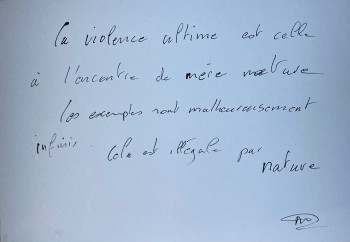 la violence ultime est celle
à l'encontre de mère nature
les exemples sont malheureusement
infinis. Cela est illégale par
nature